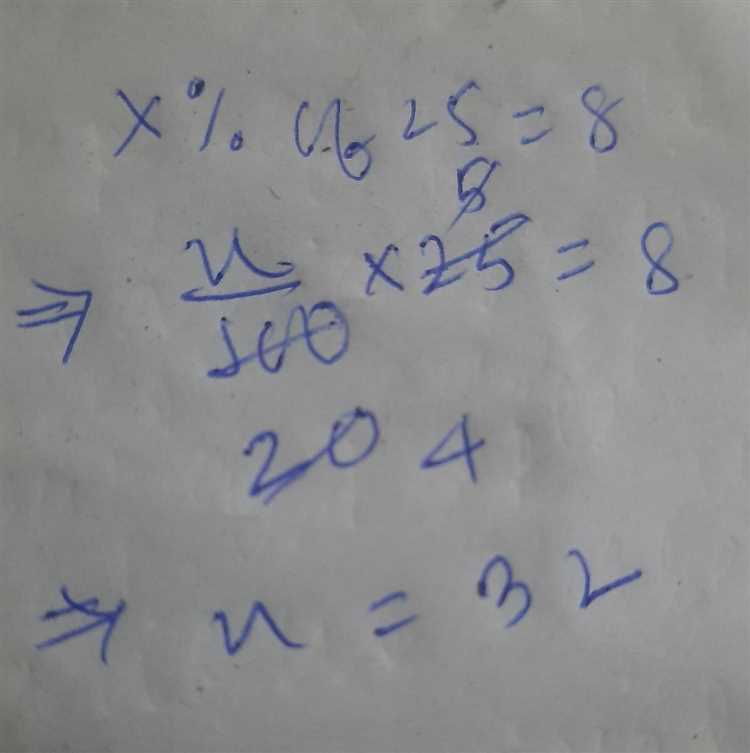 x% of 25 = 8
5
⇒ x/100 × 25 = 8
20 4
⇒ x = 32